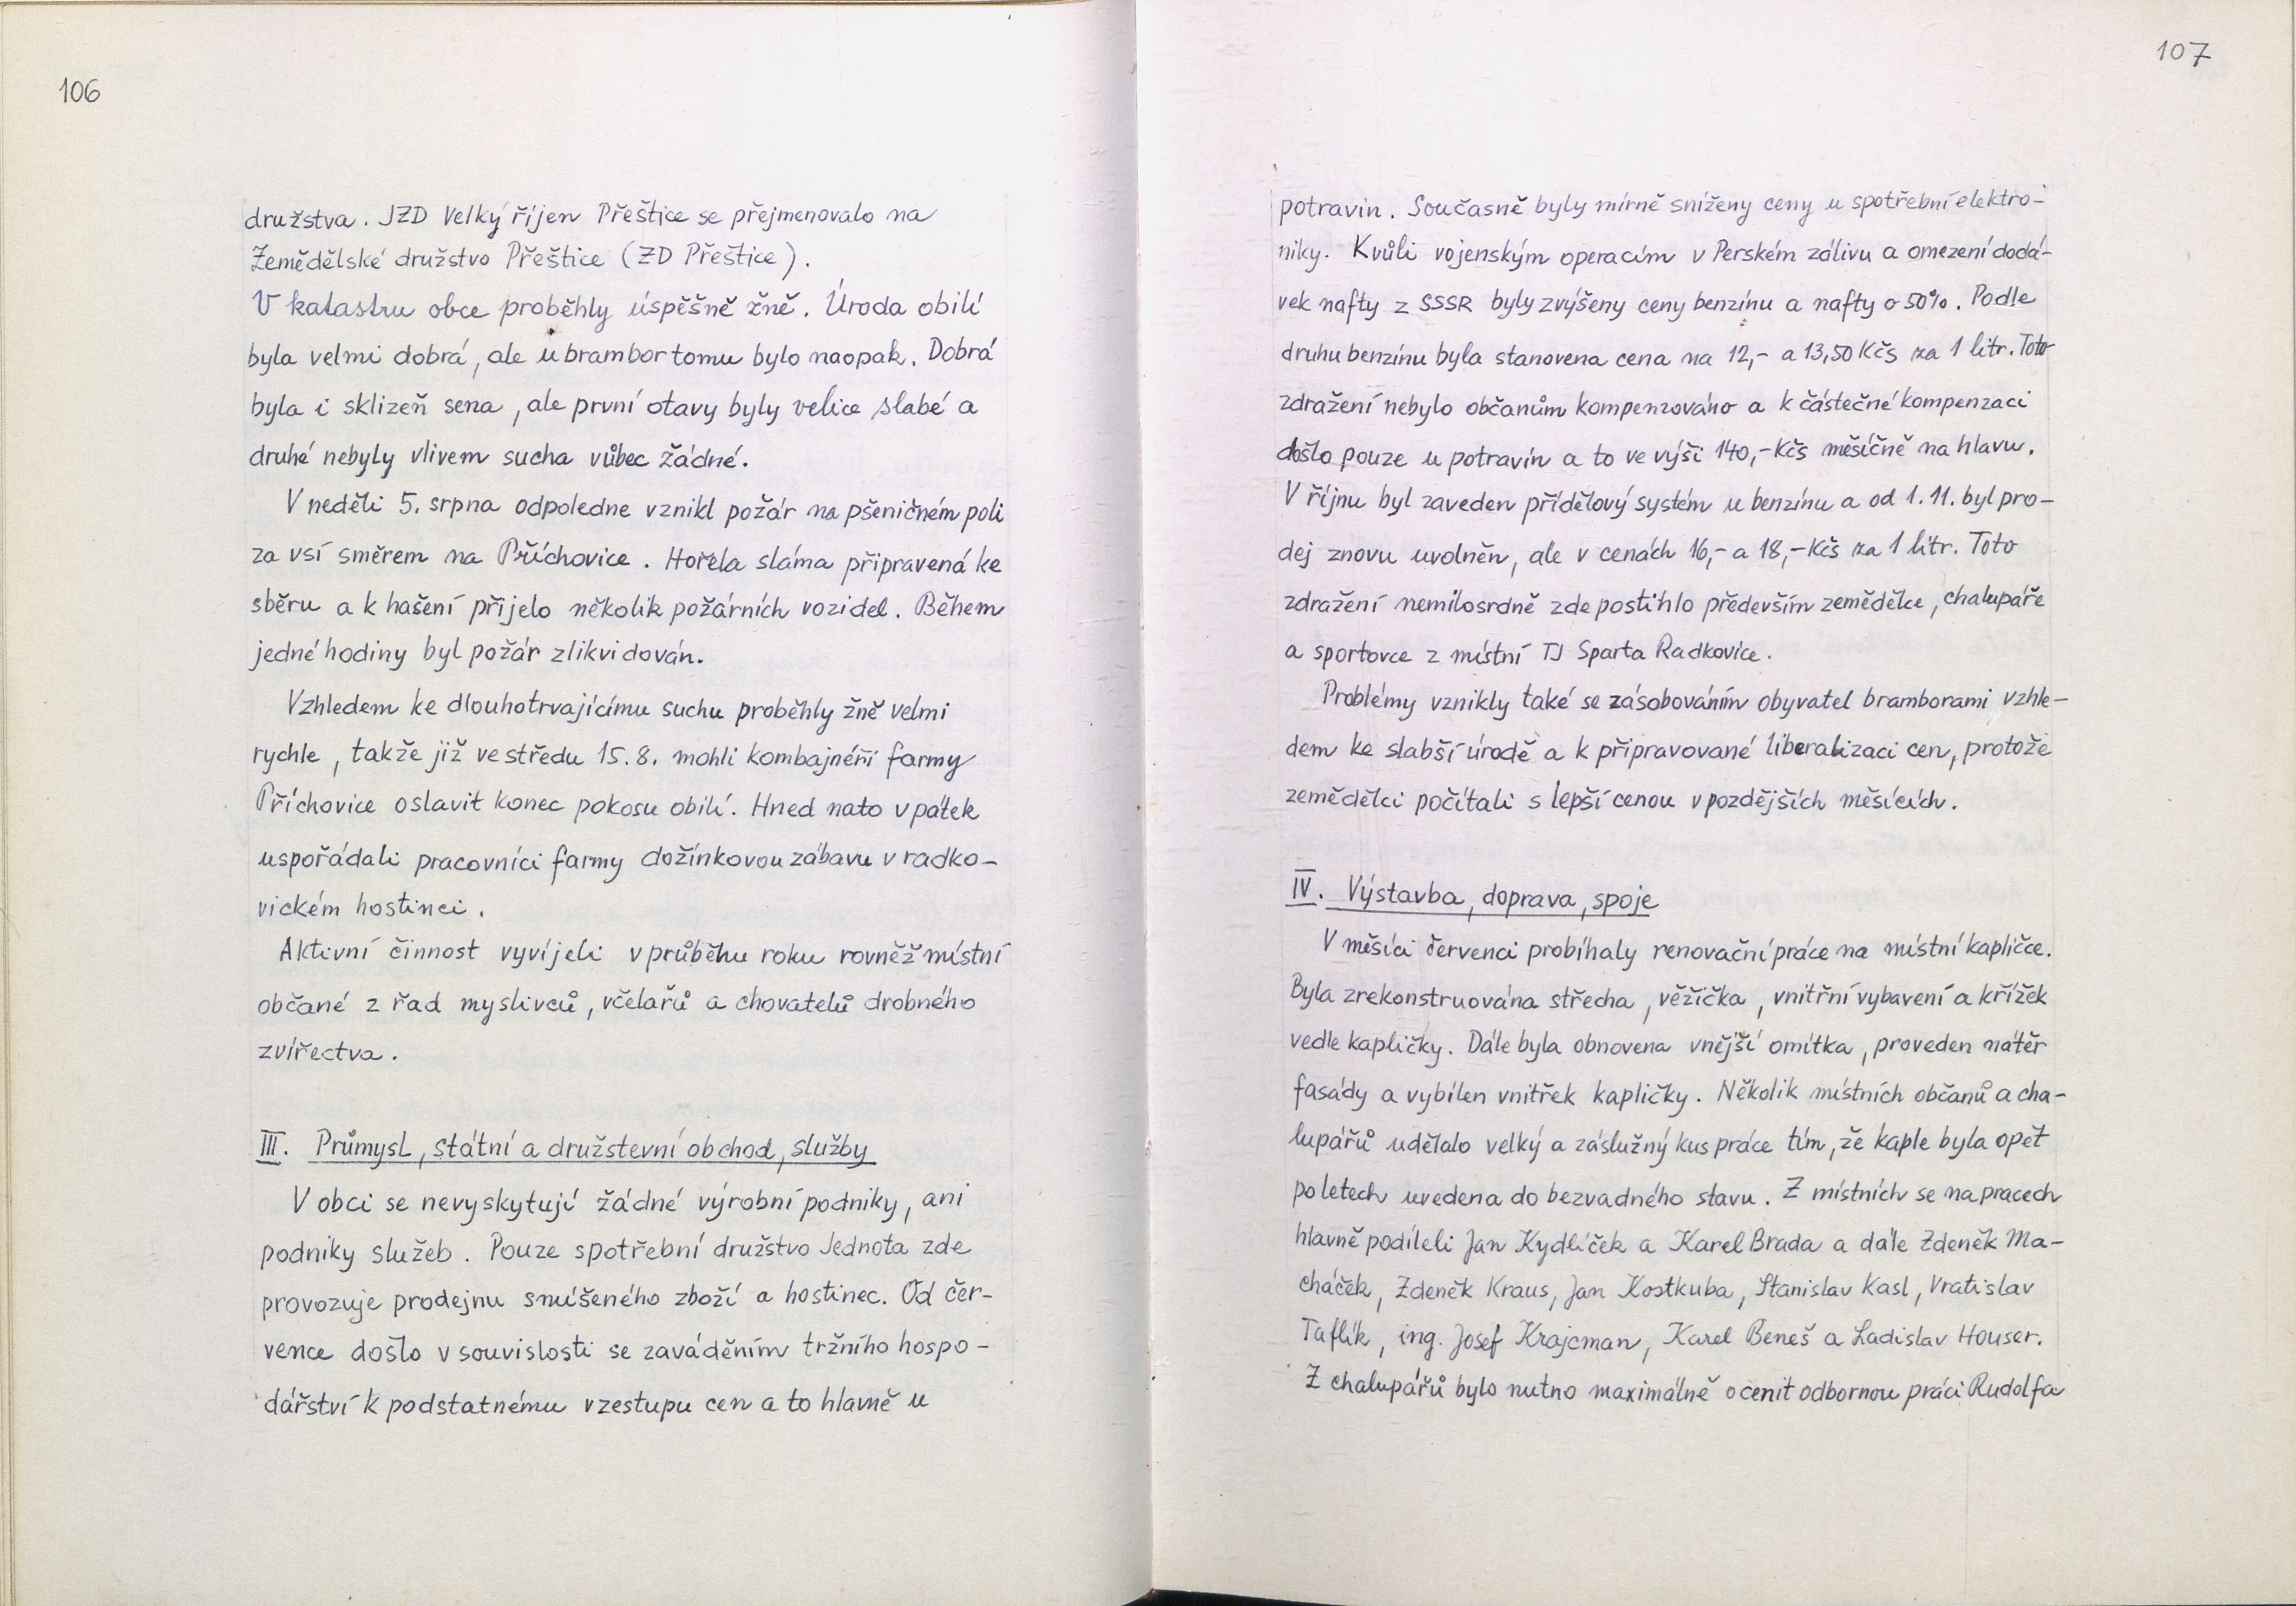 106
družstva. JZD Velký říjen Přeštice se přejmenovalo na
Zemědělské družstvo Přeštice (ZD Přeštice).
V katastru obce proběhly úspěšně žně. Úroda obilí
byla velmi dobrá, ale u brambor tomu bylo naopak. Dobrá
byla i sklizeň sena, ale první otavy byly velice slabé a
druhé nebyly vlivem sucha vůbec žádné.
V neděli 5. srpna odpoledne vznikl požár na pšeničném poli
za vsí směrem na Příchovice. Hořela sláma připravená ke
sběru a k hašení přijelo několik požárních vozidel. Během
jedné hodiny byl požár zlikvidován.
Vzhledem ke dlouhotrvajícímu suchu proběhly žně velmi
rychle, takže již ve středu 15.8. mohli kombajnéři farmy
Příchovice oslavit konec pokosu obilí. Hned nato v pátek
uspořádali pracovníci farmy dožínkovou zábavu v radko-
vickém hostinci.
Aktivní činnost vyvíjeli v průběhu roku rovněž místní
občané z řad myslivců, včelařů a chovatelů drobného
zvířectva.
III. Průmysl, státní a družstevní obchod, služby
V obci se nevyskytují žádné výrobní podniky, ani
podniky služeb. Pouze spotřební družstvo Jednota zde
provozuje prodejnu smíšeného zboží a hostinec. Od čer-
vence došlo v souvislosti se zaváděním tržního hospo-
dářství k podstatnému vzestupu cen a to hlavně u
107
potravin. Současně byly mírně sníženy ceny u spotřební elektro-
niky. Kvůli vojenským operacím v Perském zálivu a omezení dodá-
vek nafty z SSSR byly zvýšeny ceny benzínu a nafty o 50%. Podle
druhu benzínu byla stanovena cena na 12,- a 13,50 Kčs za 1 litr. Toto
zdražení nebylo občanům kompenzováno a k částečné kompenzaci
došlo pouze u potravin a to ve výši 140,- Kčs měsíčně na hlavu.
V říjnu byl zaveden přídělový systém u benzínu a od 1.11. byl pro-
dej znovu uvolněn, ale v cenách 16,- a 18,- Kčs za 1 litr. Toto
zdražení nemilosrdně zde postihlo především zemědělce, chalupáře
a sportovce z místní TJ Sparta Radkovice.
Problémy vznikly také se zásobováním obyvatel bramborami vzhle-
dem ke slabší úrodě a k připravované liberalizaci cen, protože
zemědělci počítali s lepší cenou v pozdějších měsících.
IV. Výstavba, doprava, spoje
V měsíci červenci probíhaly renovační práce na místní kapličce.
Byla zrekonstruována střecha, věžička, vnitřní vybavení a křížek
vedle kapličky. Dále byla obnovena vnější omítka, proveden nátěr
fasády a vybílen vnitřek kapličky. Několik místních občanů a cha-
lupářů udělalo velký a záslužný kus práce tím, že kaple byla opět
po letech uvedena do bezvadného stavu. Z místních se na pracech
hlavně podíleli Jan Kydlíček a Karel Brada a dále Zdeněk Ma-
cháček, Zdeněk Kraus, Jan Kostkuba, Stanislav Kasl, Vratislav
Taflík, ing. Josef Krajcman, Karel Beneš a Ladislav Houser.
Z chalupářů bylo nutno maximálně ocenit odbornou práci Rudolfa